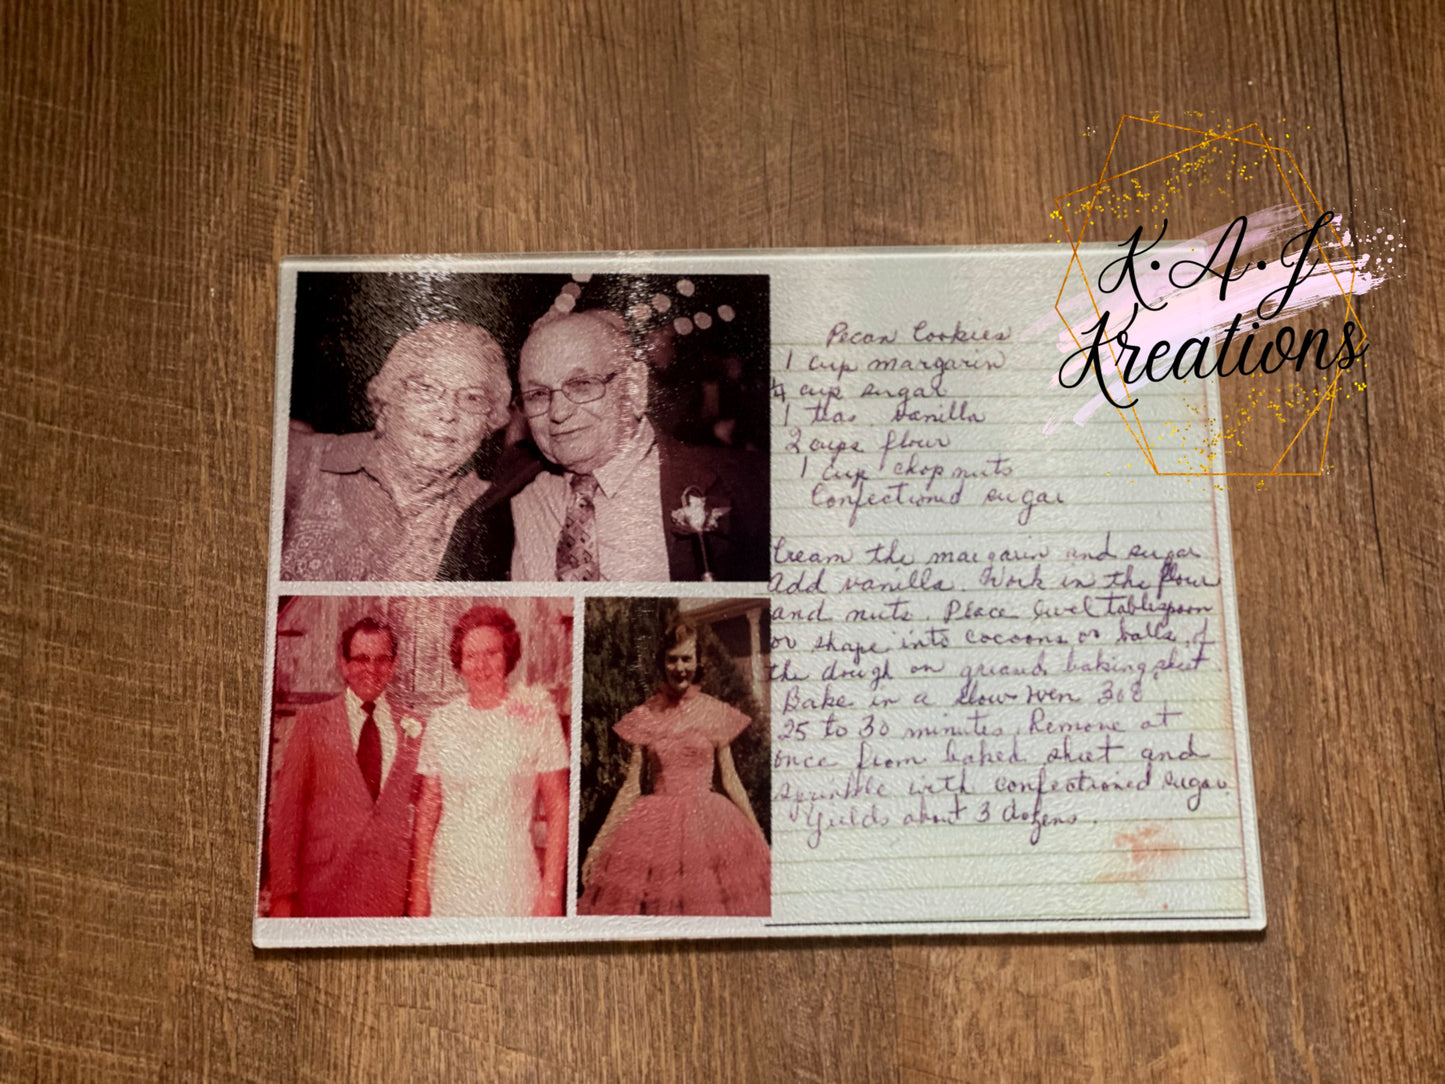 Pecan Cookies
1 cup margarin
cup sugar
1 teas. vanilla
2 cups flour
1 cup chop nuts
Confectioned sugar
Cream the margarin and sugar
add vanilla. Work in the flour
and nuts. Place level tablespoon
or shape into cocoons or balls of
the dough on greased baking sheet.
Bake in a slow oven
25 to 30 minutes. Remove at
once from baked sheet and
sprinkle with confectioned sugar.
Yields about 3 dozens.
K.A.J
Kreations